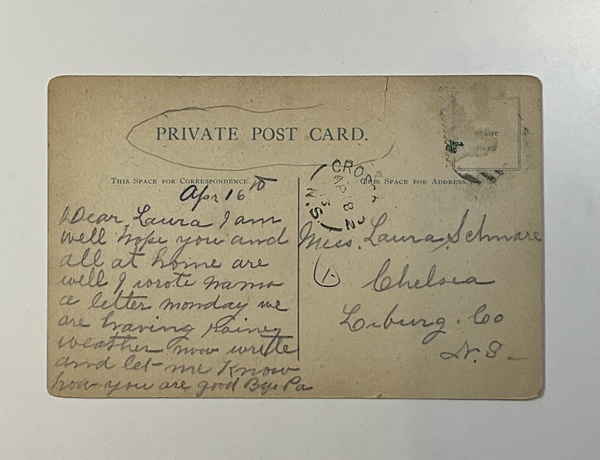 PRIVATE POST CARD.
THIS SPACE FOR CORRESPONDENCE.
THIS SPACE FOR ADDRESS.
STAMP
HERE
N.S.
Apr 16th
Dear Laura I am
well hope you and
all at home are
well I wrote mama
a letter monday we
are having rainey
weather now write
and let me Know
how you are good Bye Pa
Miss. Laura Schnare
Chelsea
L-burg. Co
N.S.